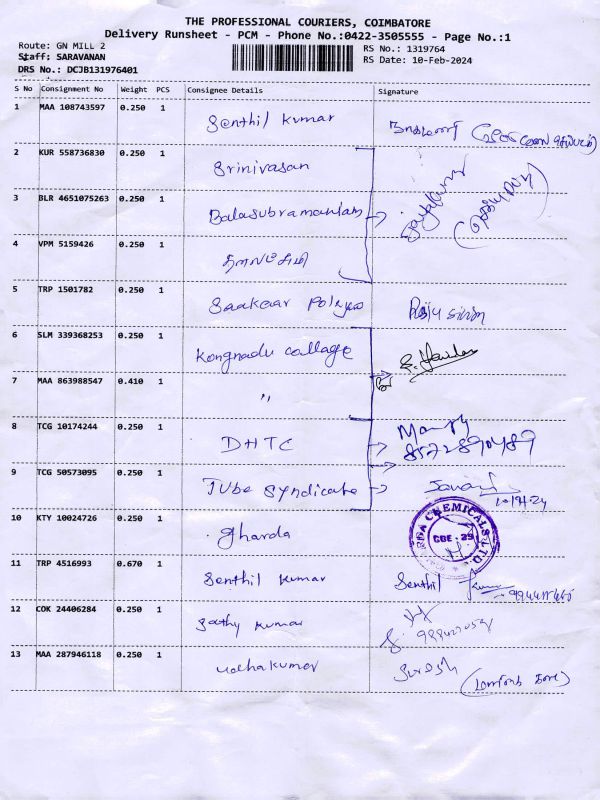 THE PROFESSIONAL COURIERS, COIMBATORE
Delivery Runsheet - PCM - Phone No.:0422-3505555 - Page No.:1
Route: GN MILL 2 RS No.: 1319764
Staff: SARAVANAN RS Date: 10-Feb-2024
DRS No.: DCJB131976401
S No Consignment No Weight PCS Consignee Details Signature
1 MAA 108743597 0.250 1 Senthil kumar
2 KUR 558736830 0.250 1 Srinivasan
3 BLR 4651075263 0.250 1 Balasubramaniam
4 VPM 5159426 0.250 1
5 TRP 1501782 0.250 1 Saakaar
6 SLM 339368253 0.250 1 Kongnadu collage
7 MAA 863988547 0.410 1 "
8 TCG 10174244 0.250 1 DHTC 8572890489
9 TCG 50573095 0.250 1 Tube Syndicate
10 KTY 10024726 0.250 1 Gharda CHEMICALS LTD. CBE - 29
11 TRP 4516993 0.670 1 Senthil kumar Senthil
12 COK 24406284 0.250 1 Sathy kumar
13 MAA 287946118 0.250 1 udhakumar Suresh